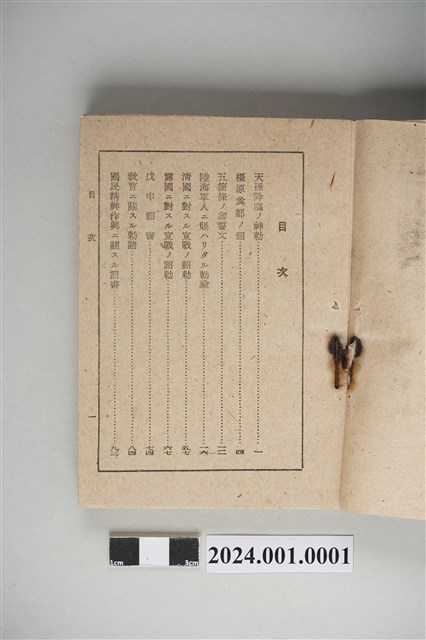 目次
天孫降臨ノ神勅……一
橿原奠都ノ詔……四
五箇條ノ御誓文……一二
陸海軍人ニ賜ハリタル勅諭……一六
清國ニ對スル宣戰ノ詔勅……五七
露國ニ對スル宣戰ノ詔勅……六七
戊申詔書……七四
教育ニ關スル勅語……八四
國民精神作興ニ關スル詔書……
目次
一
1cm 3cm
2024.001.0001